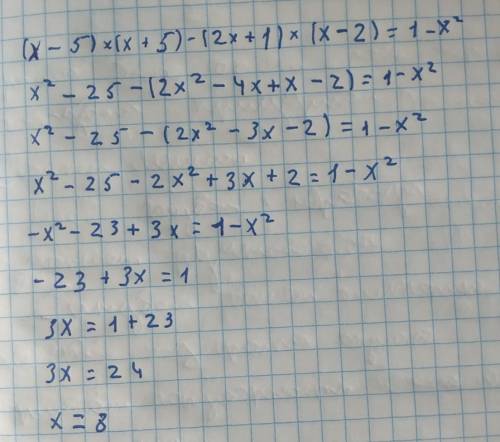 (x - 5) × (x + 5) - (2x + 1) × (x - 2) = 1 - x²
x² - 25 - (2x² - 4x + x - 2) = 1 - x²
x² - 25 - (2x² - 3x - 2) = 1 - x²
x² - 25 - 2x² + 3x + 2 = 1 - x²
-x² - 23 + 3x = 1 - x²
- 23 + 3x = 1
3x = 1 + 23
3x = 24
x = 8